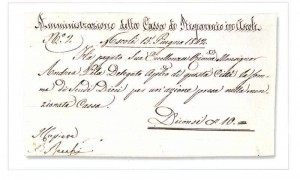 Amministrazione della Cassa di Risparmio in Ascoli.
N.° 2. Ascoli 12. Giugno 1842.
Ha pagato Sua Eccellenza Monsignor
Andrea Pila Delegato Aplico di questa Città la som-
ma di Scudi Dieci per un'azione presa nella men-
zionata Cassa.
Diconsi 10.=